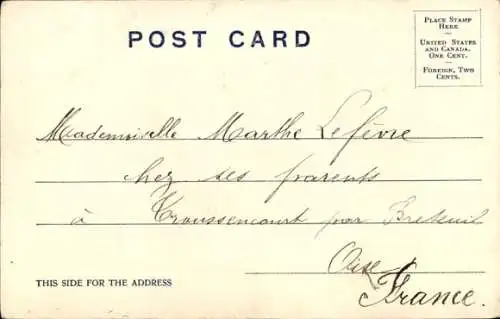 POST CARD
PLACE STAMP
HERE
UNITED STATES
AND CANADA,
ONE CENT.
FOREIGN, TWO
CENTS.
Mademoiselle Marthe Lefèvre
chez ses parents
à Troussencourt par Breteuil
Oise
France.
THIS SIDE FOR THE ADDRESS